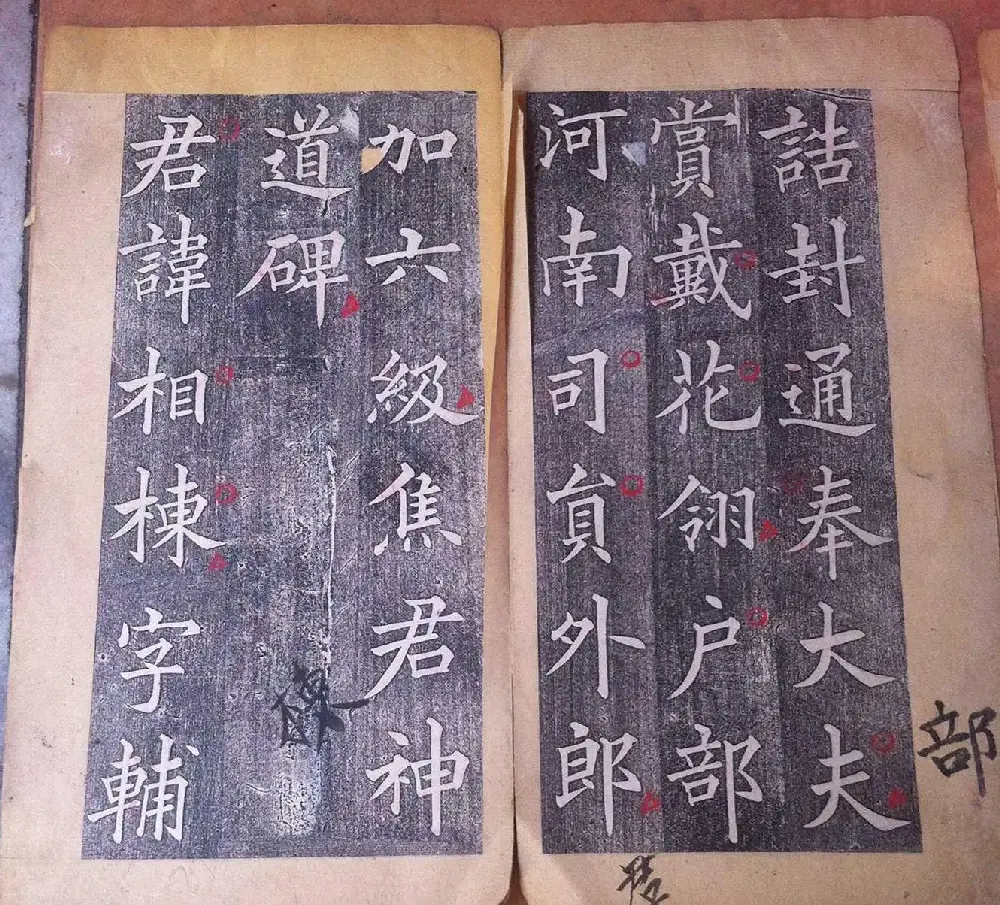 誥封通奉大夫
賞戴花翎戶部
河南司員外郎
加六級焦君神
道碑
君諱相棟字輔
部